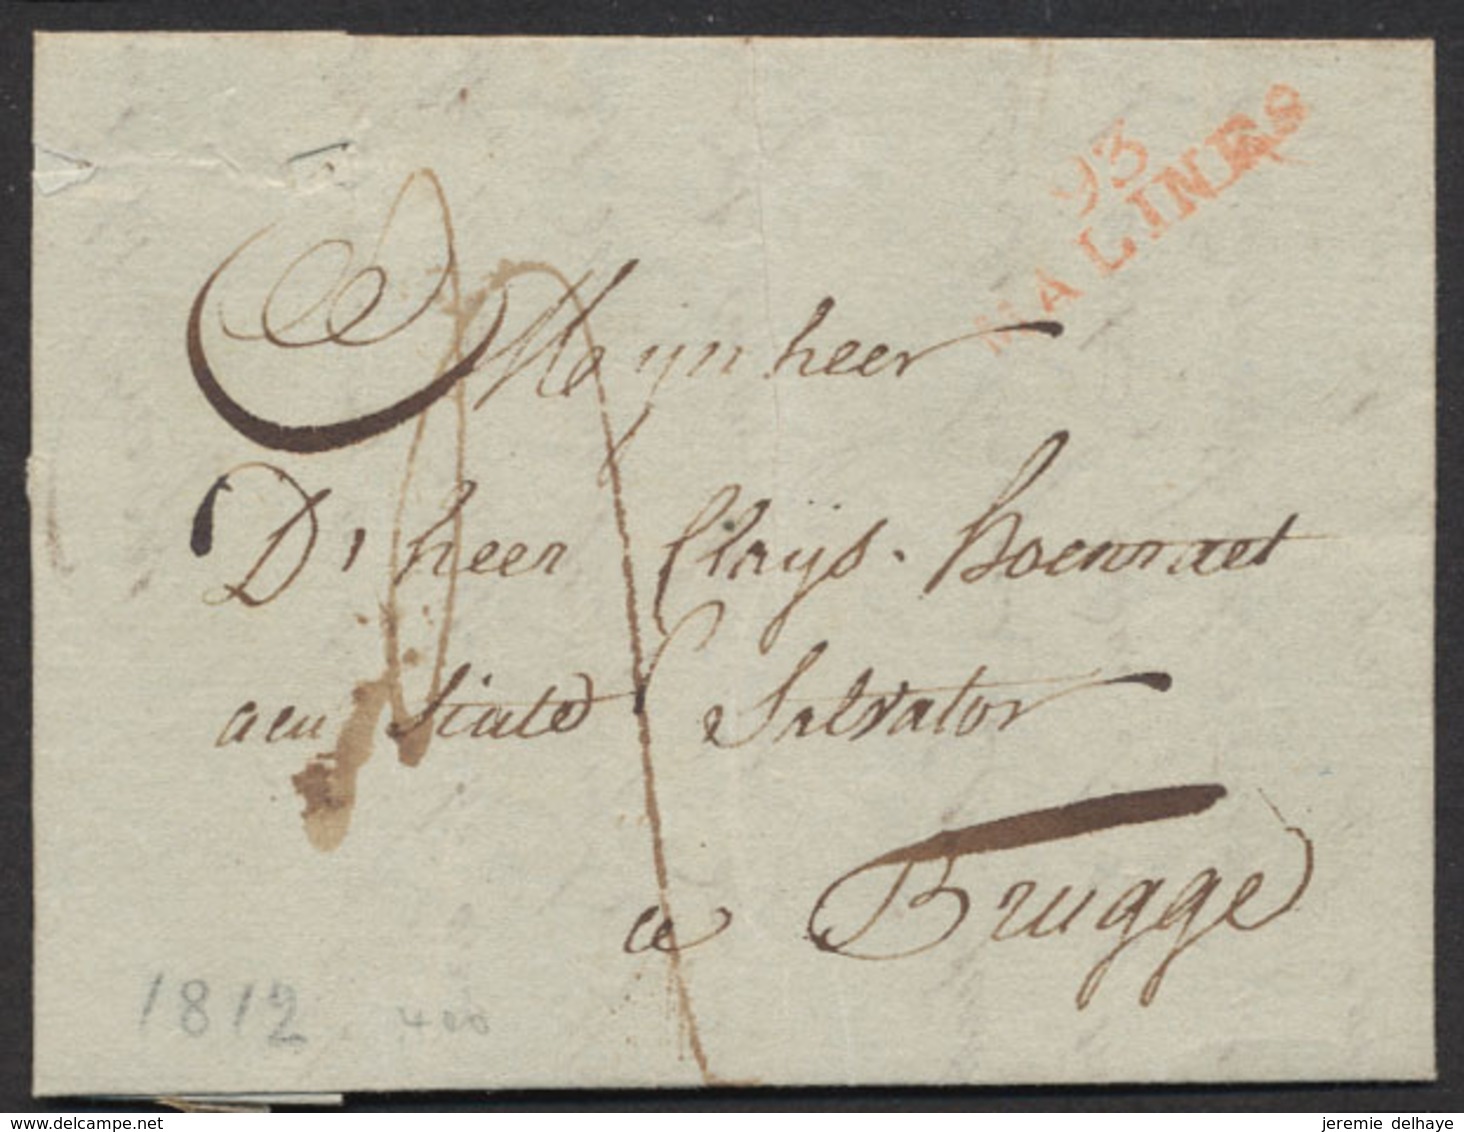 93
MALINES
Mynheer
D'heer Claijs. Boennaet
aen State Salvator
a Brugge
1812 . 400
www.delcampe.net
jeremie delhaye